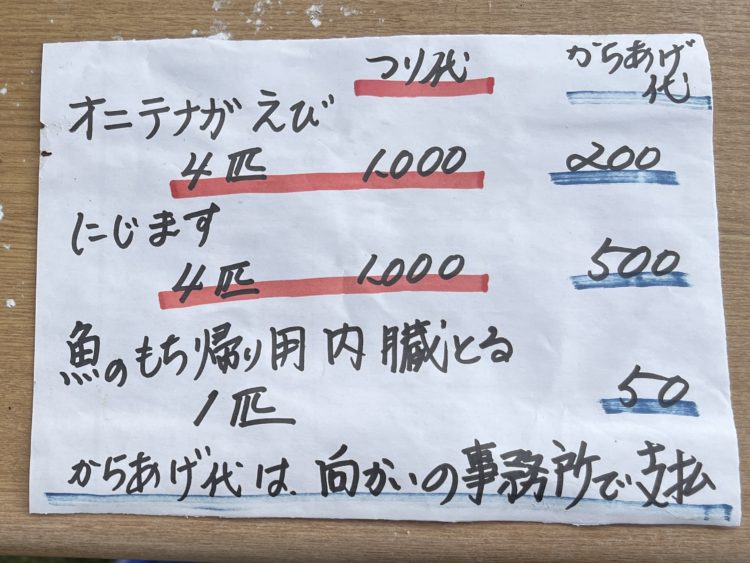 つり代 からあげ代
オニテナガえび
4匹 1,000 200
にじます
4匹 1,000 500
魚のもち帰り用内臓とる
1匹 50
からあげ代は、向かいの事務所で支払